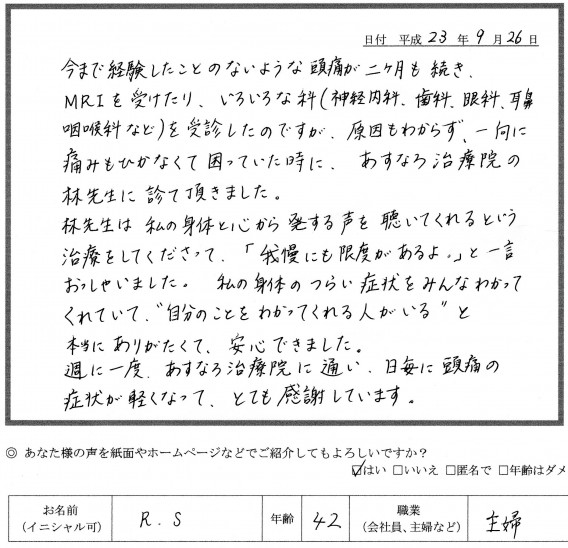 日付 平成 23 年 9 月 26 日
今まで経験したことのないような頭痛が二ヶ月も続き、
MRIを受けたり、いろいろな科(神経内科、歯科、眼科、耳鼻
咽喉科など)を受診したのですが、原因もわからず、一向に
痛みもひかなくて困っていた時に、あすなろ治療院の
林先生に診て頂きました。
林先生は私の身体と心から発する声を聴いてくれるという
治療をしてくださって、「我慢にも限度があるよ。」と一言
おっしゃいました。私の身体のつらい症状をみんなわかって
くれていて、"自分のことをわかってくれる人がいる"と
本当にありがたくて、安心できました。
週に一度、あすなろ治療院に通い、日毎に頭痛の
症状が軽くなって、とても感謝しています。
◎ あなた様の声を紙面やホームページなどでご紹介してもよろしいですか?
☑はい □いいえ □匿名で □年齢はダメ
お名前(イニシャル可) R.S 年齢 42 職業(会社員、主婦など) 主婦